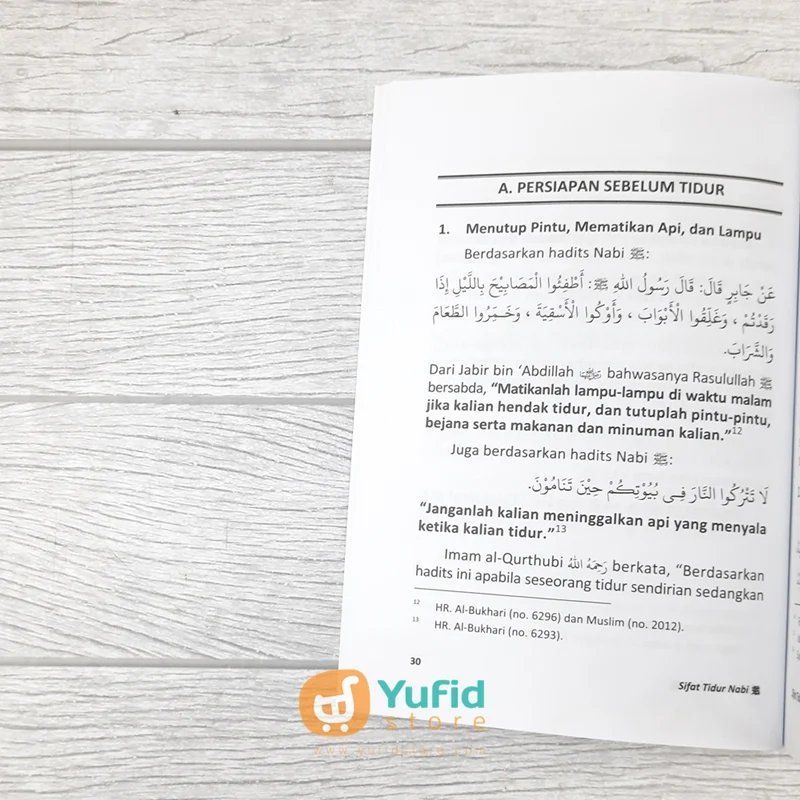 A. PERSIAPAN SEBELUM TIDUR
1. Menutup Pintu, Mematikan Api, dan Lampu
Berdasarkan hadits Nabi ﷺ:
عَنْ جَابِرٍ قَالَ: قَالَ رَسُولُ اللهِ ﷺ: أَطْفِئُوا الْمَصَابِيْحَ بِاللَّيْلِ إِذَا
رَقَدْتُمْ ، وَغَلِّقُوا الْأَبْوَابَ ، وَأَوْكُوا الْأَسْقِيَةَ ، وَخَمِّرُوا الطَّعَامَ
وَالشَّرَابَ.
Dari Jabir bin ‘Abdillah bahwasanya Rasulullah ﷺ
bersabda, “Matikanlah lampu-lampu di waktu malam
jika kalian hendak tidur, dan tutuplah pintu-pintu,
bejana serta makanan dan minuman kalian.”12
Juga berdasarkan hadits Nabi ﷺ:
لَا تَتْرُكُوا النَّارَ فِي بُيُوْتِكُمْ حِيْنَ تَنَامُوْنَ.
“Janganlah kalian meninggalkan api yang menyala
ketika kalian tidur.”13
Imam al-Qurthubi رَحِمَهُ اللهُ berkata, “Berdasarkan
hadits ini apabila seseorang tidur sendirian sedangkan
12 HR. Al-Bukhari (no. 6296) dan Muslim (no. 2012).
13 HR. Al-Bukhari (no. 6293).
30
Sifat Tidur Nabi ﷺ
Yufid
store
www.yufidstore.com